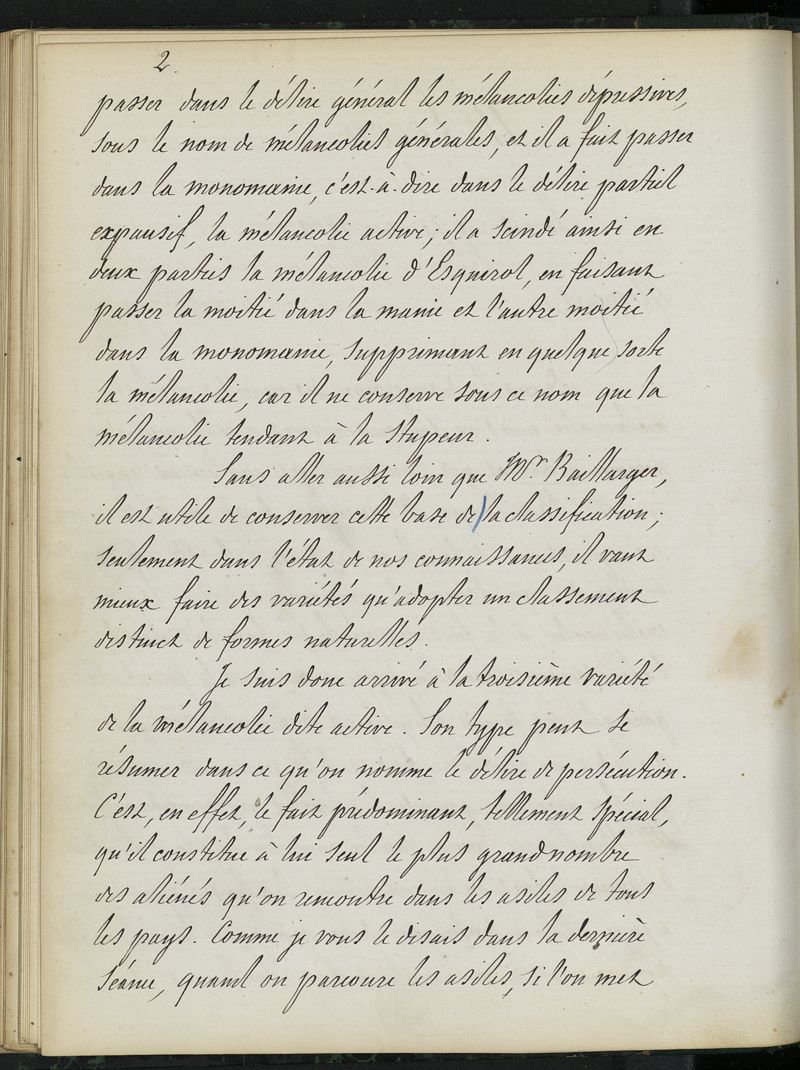 2.
passer dans le délire général les mélancolies dépressives,
sous le nom de mélancolies générales, et il a fait passer
dans la monomanie, c'est-à-dire dans le délire partiel
expansif, la mélancolie active; il a scindé ainsi en
deux parties la mélancolie d'Esquirol, en faisant
passer la moitié dans la manie et l'autre moitié
dans la monomanie, supprimant en quelque sorte
la mélancolie, car il ne conserve sous ce nom que la
mélancolie tendant à la stupeur.
Sans aller aussi loin que Mr. Baillarger,
il est utile de conserver cette base de la classification;
seulement dans l'état de nos connaissances, il vaut
mieux faire des variétés qu'adopter un classement
distinct de formes naturelles.
Je suis donc arrivé à la troisième variété
de la mélancolie dite active. Son type peut se
résumer dans ce qu'on nomme le délire de persécution.
C'est, en effet, le fait prédominant, tellement spécial,
qu'il constitue à lui seul le plus grand nombre
des aliénés qu'on rencontre dans les asiles de tous
les pays. Comme je vous le disais dans la dernière
séance, quand on parcoure les asiles, si l'on met